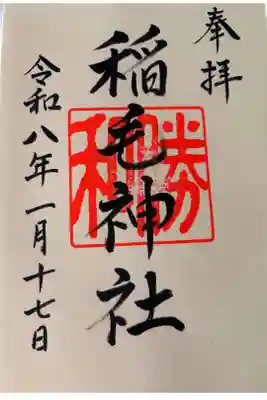 奉拝
稲毛神社
令和八年一月十七日